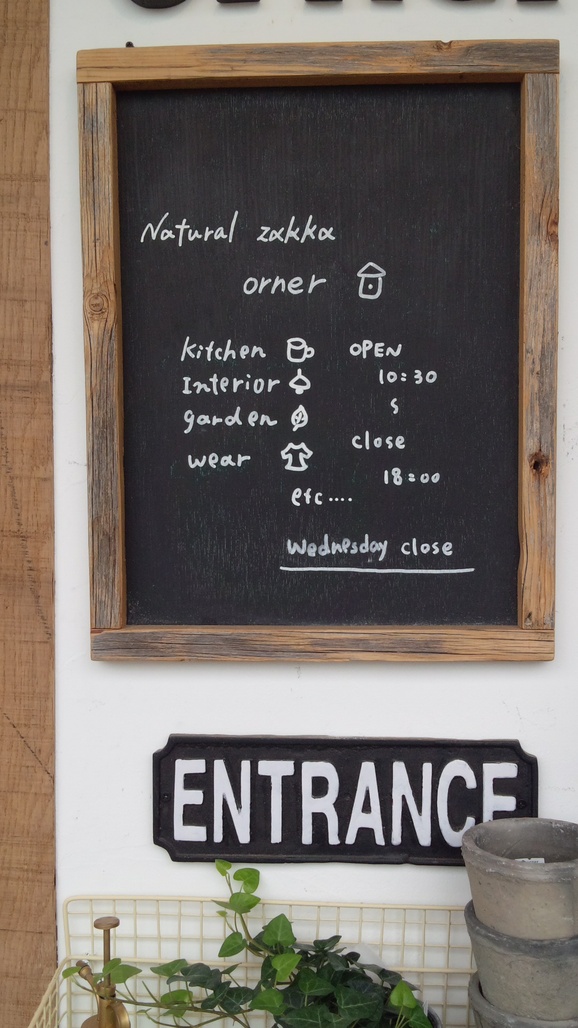 Natural zakka
orner
kitchen
Interior
garden
wear
etc....
OPEN
10:30
s
close
18:00
Wednesday close
ENTRANCE